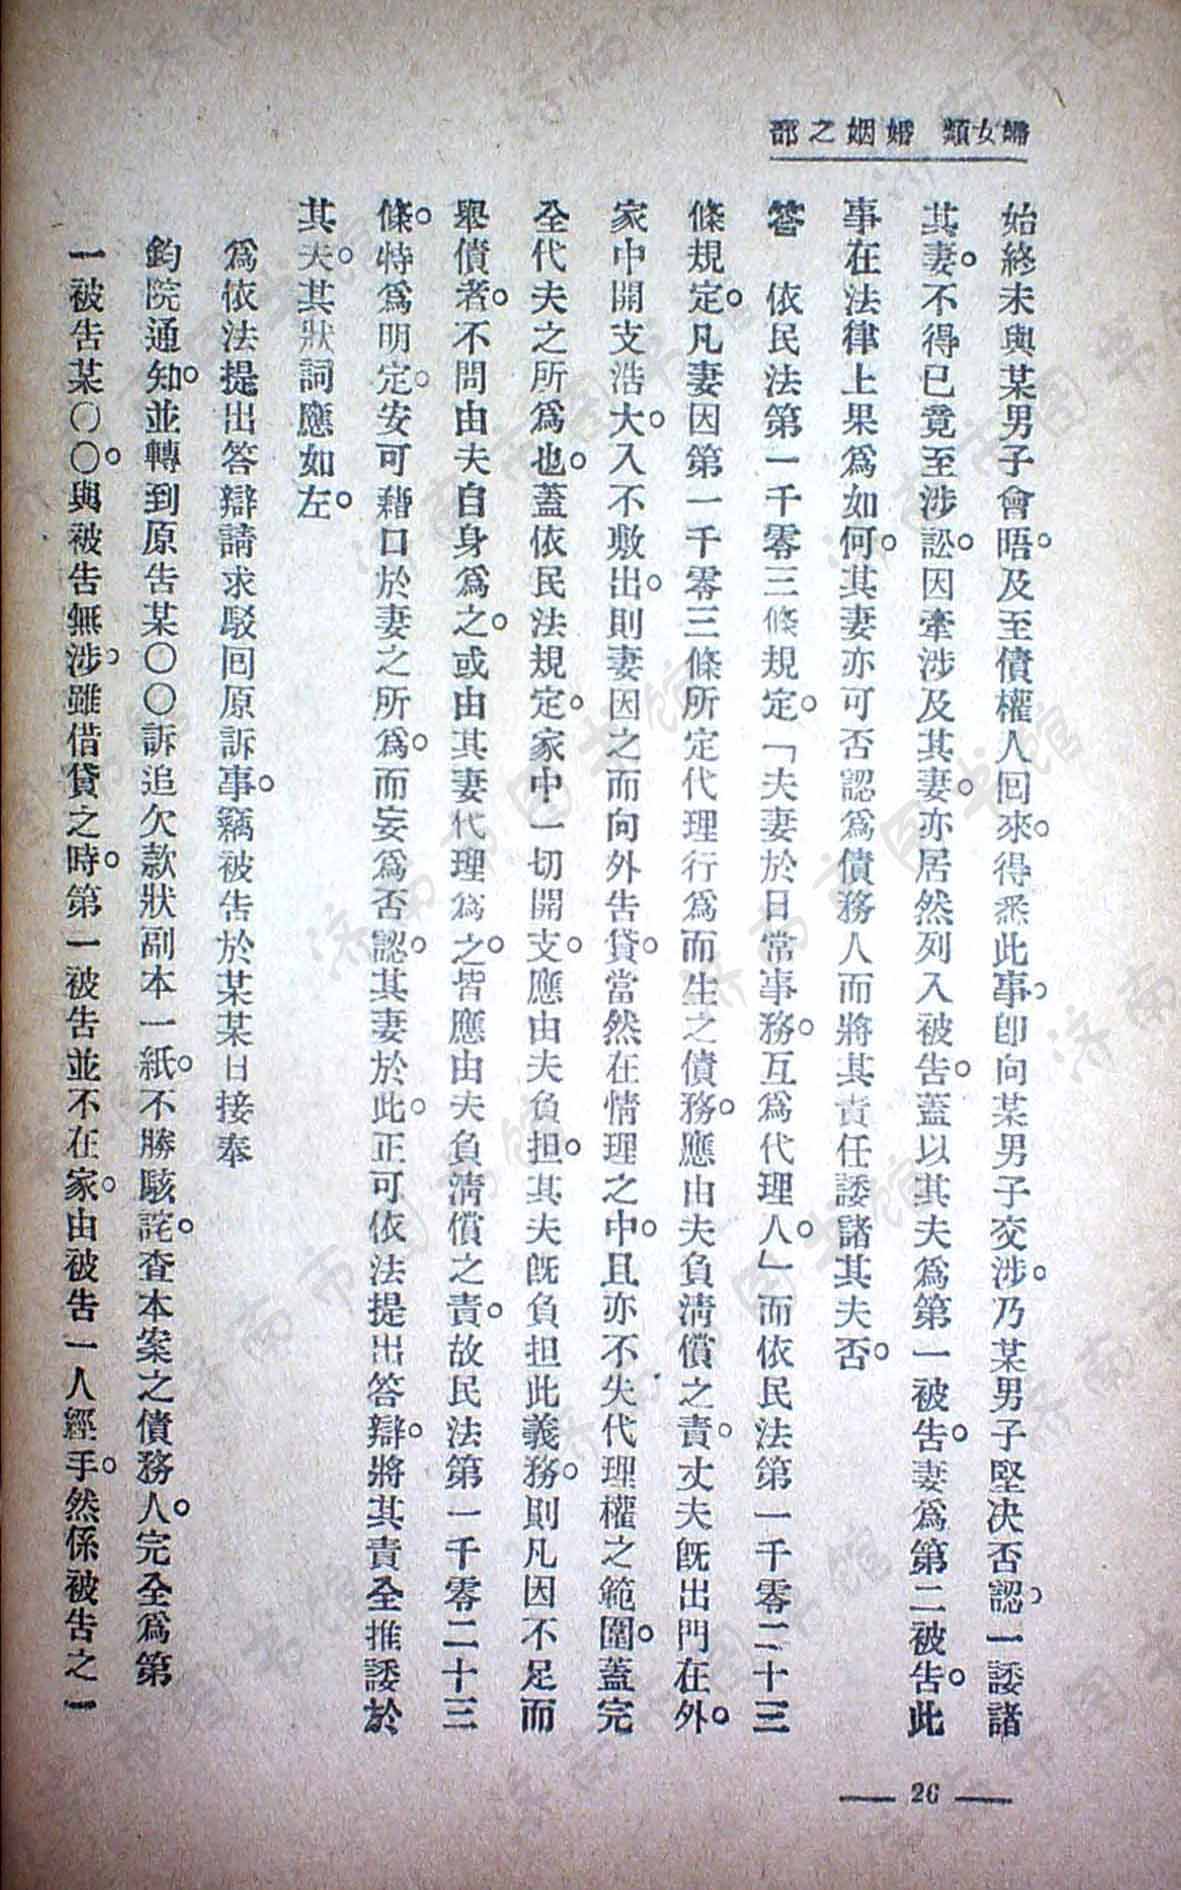 婦女類 婚姻之部
始終未與某男子會晤。及至債權人回來。得悉此事。卽向某男子交涉。乃某男子堅决否認。一諉諸
其妻。不得已竟至涉訟。因牽涉及其妻。亦居然列入被告。蓋以其夫爲第一被告。妻爲第二被告。此
事在法律上果爲如何。其妻亦可否認爲債務人而將其責任諉諸其夫否。
答 依民法第一千零三條規定。「夫妻於日常事務。互爲代理人。」而依民法第一千零二十三
條規定。凡妻因第一千零三條所定代理行爲而生之債務。應由夫負淸償之責。丈夫旣出門在外。
家中開支浩大。入不敷出。則妻因之而向外告貸。當然在情理之中。且亦不失代理權之範圍。蓋完
全代夫之所爲也。蓋依民法規定。家中一切開支。應由夫負担。其夫旣負担此義務。則凡因不足而
舉債者。不問由夫自身爲之。或由其妻代理爲之。皆應由夫負淸償之責。故民法第一千零二十三
條。特爲明定。安可藉口於妻之所爲。而妄爲否認。其妻於此。正可依法提出答辯。將其責全推諉於
其夫。其狀詞應如左。
爲依法提出答辯請求駁回原訴事。竊被告於某某日接奉
鈞院通知。並轉到原告某〇〇訴追欠款狀副本一紙。不勝駭詫。查本案之債務人。完全爲第
一被告某〇〇。與被告無涉。雖借貸之時。第一被告並不在家。由被告一人經手。然係被告之一
26
济南市图书馆